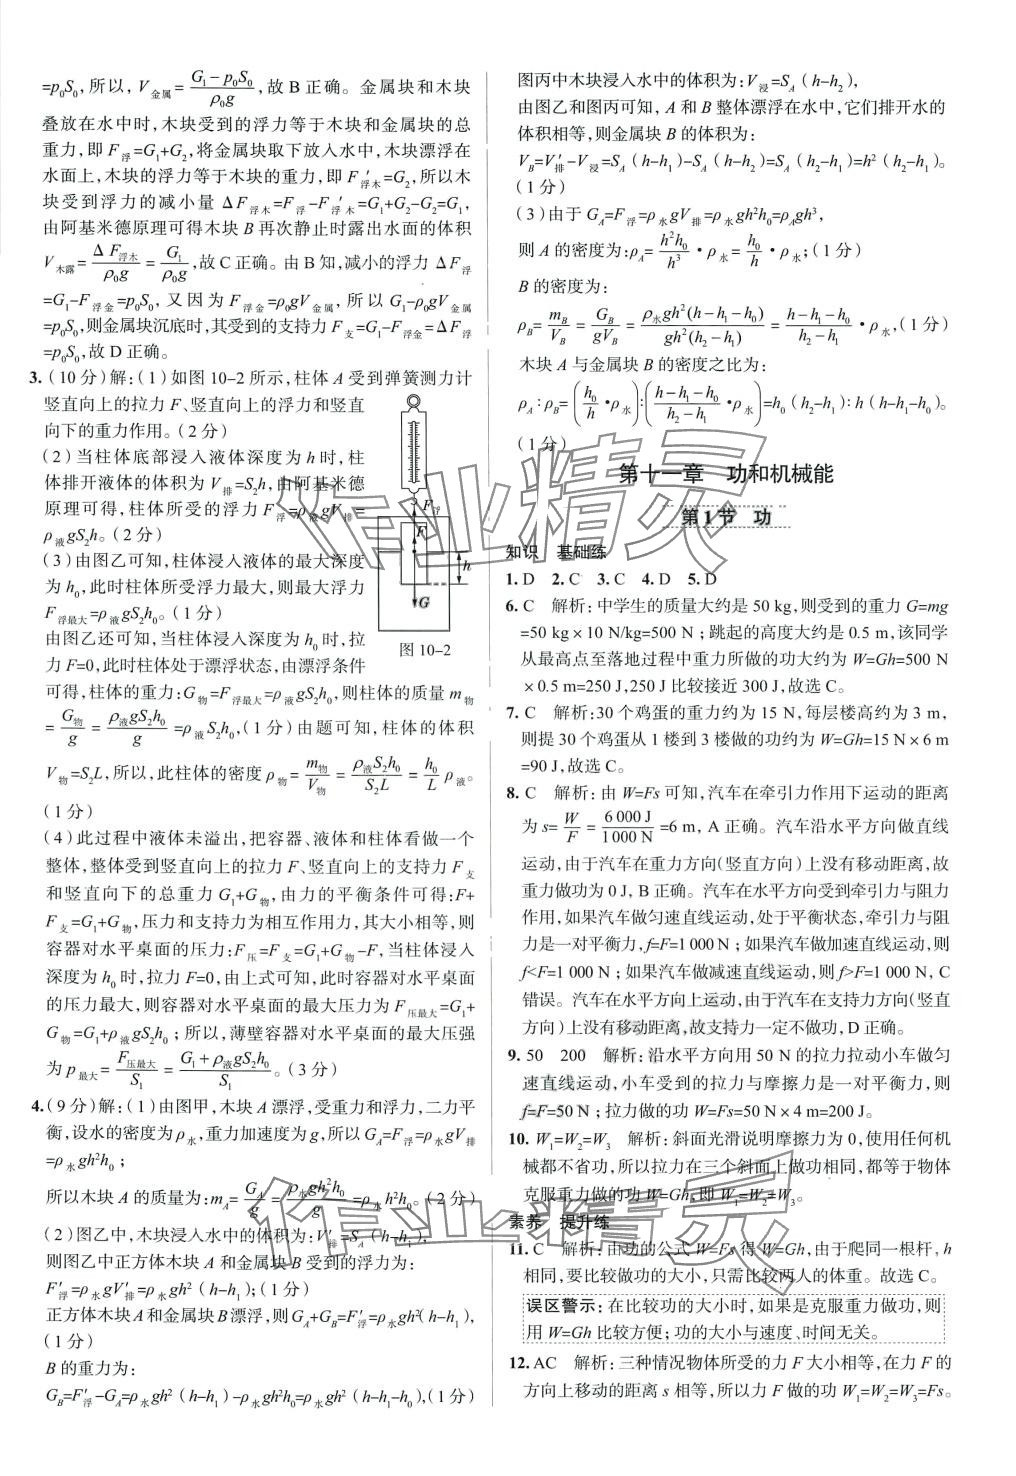 =p₀S₀,所以,V金属=(G₁-p₀S₀)/(ρ₀g),故 B 正确。金属块和木块
叠放在水中时,木块受到的浮力等于木块和金属块的总
重力,即 F浮=G₁+G₂,将金属块取下放入水中,木块漂浮在
水面上,木块的浮力等于木块的重力,即 F′浮木=G₂,所以木
块受到浮力的减小量 ΔF浮木=F浮-F′浮木=G₁+G₂-G₂=G₁,
由阿基米德原理可得木块 B 再次静止时露出水面的体积
V木露=ΔF浮木/(ρ₀g)=G₁/(ρ₀g),故 C 正确。由 B 知,减小的浮力 ΔF浮
=G₁-F浮金=p₀S₀,又因为 F浮金=ρ₀gV金属,所以 G₁-ρ₀gV金属
=p₀S₀,则金属块沉底时,其受到的支持力 F支=G₁-F浮金=ΔF浮
=p₀S₀,故 D 正确。
3.(10 分)解:(1)如图 10-2 所示,柱体 A 受到弹簧测力计
竖直向上的拉力 F、竖直向上的浮力和竖直
向下的重力作用。(2 分)
(2)当柱体底部浸入液体深度为 h 时,柱
体排开液体的体积为 V排=S₂h,由阿基米德
原理可得,柱体所受的浮力 F浮=ρ液gV排=
ρ液gS₂h。(2 分)
(3)由图乙可知,柱体浸入液体的最大深度
为 h₀,此时柱体所受浮力最大,则最大浮力
F浮最大=ρ液gS₂h₀。(1 分)
由图乙还可知,当柱体浸入深度为 h₀ 时,拉
力 F=0,此时柱体处于漂浮状态,由漂浮条件
F浮
F
h
G
图 10-2
可得,柱体的重力:G物=F浮最大=ρ液gS₂h₀,则柱体的质量 m物
=G物/g=ρ液gS₂h₀/g=ρ液S₂h₀,(1 分)由题可知,柱体的体积
V物=S₂L,所以,此柱体的密度 ρ物=m物/V物=ρ液S₂h₀/(S₂L)=(h₀/L)ρ液。
(1 分)
(4)此过程中液体未溢出,把容器、液体和柱体看做一个
整体,整体受到竖直向上的拉力 F、竖直向上的支持力 F支
和竖直向下的总重力 G₁+G物,由力的平衡条件可得:F+
F支=G₁+G物,压力和支持力为相互作用力,其大小相等,则
容器对水平桌面的压力:F压=F支=G₁+G物-F,当柱体浸入
深度为 h₀ 时,拉力 F=0,由上式可知,此时容器对水平桌面
的压力最大,则容器对水平桌面的最大压力为 F压最大=G₁+
G物=G₁+ρ液gS₂h₀;所以,薄壁容器对水平桌面的最大压强
为 p最大=F压最大/S₁=(G₁+ρ液gS₂h₀)/S₁。(3 分)
4.(9 分)解:(1)由图甲,木块 A 漂浮,受重力和浮力,二力平
衡,设水的密度为 ρ水,重力加速度为 g,所以 GA=F浮=ρ水gV排
=ρ水gh²h₀;
所以木块 A 的质量为:mA=GA/g=ρ水gh²h₀/g=ρ水h²h₀。(2 分)
(2)图乙中,木块浸入水中的体积为:V′排=SA(h-h₁),
则图乙中正方体木块 A 和金属块 B 受到的浮力为:
F′浮=ρ水gV′排=ρ水gh²(h-h₁);(1 分)
正方体木块 A 和金属块 B 漂浮,则 GA+GB=F′浮=ρ水gh²(h-h₁),
(1 分)
B 的重力为:
GB=F′浮-GA=ρ水gh²(h-h₁)-ρ水gh²h₀=ρ水gh²(h-h₁-h₀),(1 分)
图丙中木块浸入水中的体积为:V浸=SA(h-h₂),
由图乙和图丙可知,A 和 B 整体漂浮在水中,它们排开水的
体积相等,则金属块 B 的体积为:
VB=V′排-V浸=SA(h-h₁)-SA(h-h₂)=SA(h₂-h₁)=h²(h₂-h₁)。
(1 分)
(3)由于 GA=F浮=ρ水gV排=ρ水gh²h₀=ρAgh³,
则 A 的密度为:ρA=h²h₀/h³·ρ水=h₀/h·ρ水;(1 分)
B 的密度为:
ρB=mB/VB=GB/(gVB)=ρ水gh²(h-h₁-h₀)/(gh²(h₂-h₁))=(h-h₁-h₀)/(h₂-h₁)·ρ水,(1 分)
木块 A 与金属块 B 的密度之比为:
ρA∶ρB=(h₀/h·ρ水)∶((h-h₁-h₀)/(h₂-h₁)·ρ水)=h₀(h₂-h₁)∶h(h-h₁-h₀)。
(1 分)
第十一章 功和机械能
第 1 节 功
知识 基础练
1. D 2. C 3. C 4. D 5. D
6. C 解析:中学生的质量大约是 50 kg,则受到的重力 G=mg
=50 kg×10 N/kg=500 N;跳起的高度大约是 0.5 m,该同学
从最高点至落地过程中重力所做的功大约为 W=Gh=500 N
×0.5 m=250 J,250 J 比较接近 300 J,故选 C。
7. C 解析:30 个鸡蛋的重力约为 15 N,每层楼高约为 3 m,
则提 30 个鸡蛋从 1 楼到 3 楼做的功约为 W=Gh=15 N×6 m
=90 J,故选 C。
8. C 解析:由 W=Fs 可知,汽车在牵引力作用下运动的距离
为 s=W/F=6 000 J/1 000 N=6 m,A 正确。汽车沿水平方向做直线
运动,由于汽车在重力方向(竖直方向)上没有移动距离,故
重力做功为 0 J,B 正确。汽车在水平方向受到牵引力与阻力
作用,如果汽车做匀速直线运动,处于平衡状态,牵引力与阻
力是一对平衡力,f=F=1 000 N;如果汽车做加速直线运动,则
f<F=1 000 N;如果汽车做减速直线运动,则 f>F=1 000 N,C
错误。汽车在水平方向上运动,由于汽车在支持力方向(竖直
方向)上没有移动距离,故支持力一定不做功,D 正确。
9. 50 200 解析:沿水平方向用 50 N 的拉力拉动小车做匀
速直线运动,小车受到的拉力与摩擦力是一对平衡力,则
f=F=50 N;拉力做的功 W=Fs=50 N×4 m=200 J。
10. W₁=W₂=W₃ 解析:斜面光滑说明摩擦力为 0,使用任何机
械都不省功,所以拉力在三个斜面上做功相同,都等于物体
克服重力做的功 W=Gh,即 W₁=W₂=W₃。
素养 提升练
11. C 解析:由功的公式 W=Fs 得 W=Gh,由于爬同一根杆,h
相同,要比较做功的大小,只需比较两人的体重。故选 C。
误区警示:在比较功的大小时,如果是克服重力做功,则
用 W=Gh 比较方便;功的大小与速度、时间无关。
12. AC 解析:三种情况物体所受的力 F 大小相等,在力 F 的
方向上移动的距离 s 相等,所以力 F 做的功 W₁=W₂=W₃=Fs。
作业精灵
作业精灵